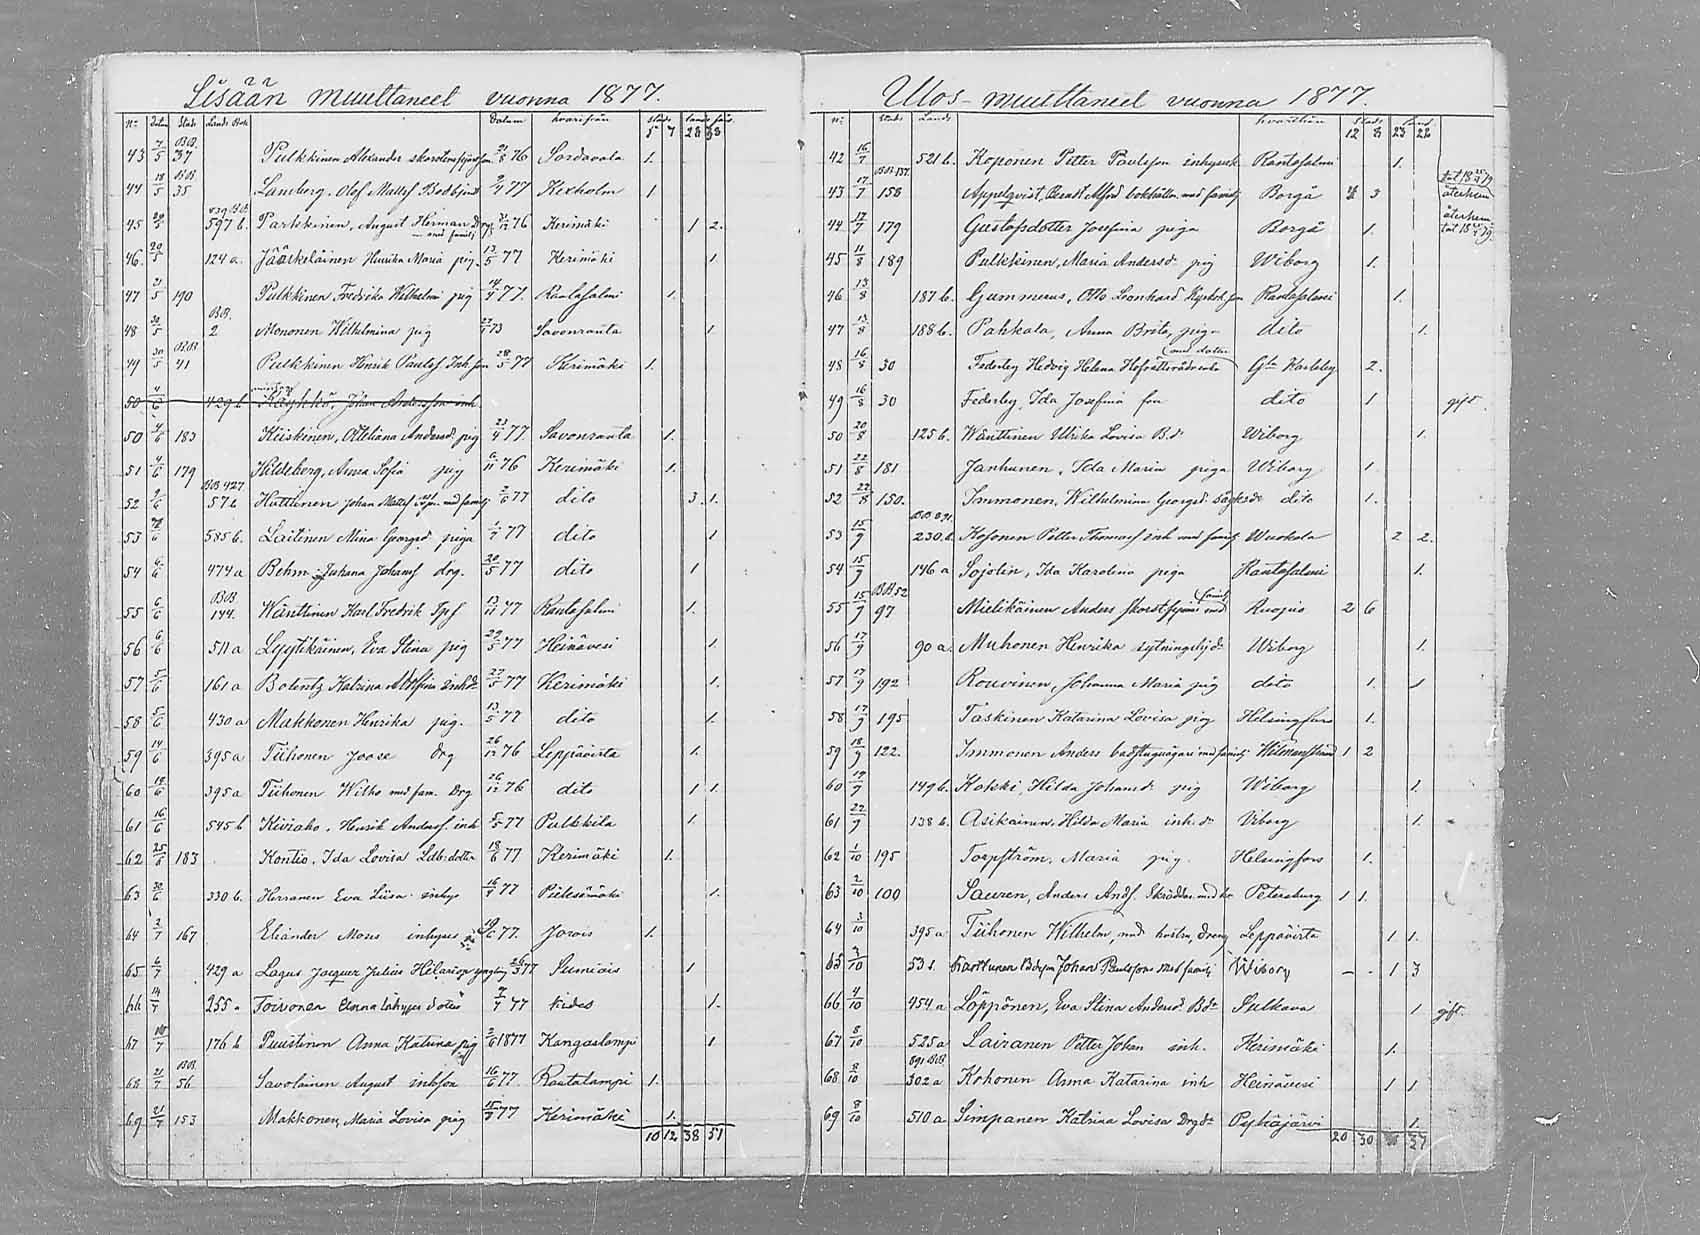 Sisään muuttaneet vuonna 1877.
No Datum Stads Lands Bok Datum hvarifrån stads land förs.
5 7 28 38
43 7/5 BB. 37 Pulkkinen Alexander skorstensfejare son 21/8 76 Sordavala 1.
44 18/5 BB 35 Lamberg, Olof Mattss 9/4 77 Kexholm 1
45 20/5 597 b. Parkkinen, August Herman Drg med familj 76 Kerimäki 1 2.
46. 20/5 124 a. Jääskeläinen Henrika Maria pig. 13/5 77 Kerimäki 1.
47 21/5 190 Pulkkinen Fredrika Wilhelmi pig 14/4 77. Rantasalmi 1.
48 30/5 BB. 2 Mononen Wilhelmina pig 73 Savonranta 1.
49 30/5 BB 41 Pulkkinen Henrik Paulss Inh. son 28/5 77 Kerimäki 1.
50 4/6 429 b Käyhkö, Johan Andersson inh.
50 4/6 183 Keiskinen, Otteliana Andersd. pig 23/4 77. Savonranta 1.
51 4/6 179 Hildeberg, Anna Sofia pig 6/11 76 Kerimäki 1.
52 9/6 BB 427 57 b Hottinen Johan Mattss med familj 2/6 77 dito 3. 1.
53 585 b. Laitinen Mina Georgsd. piga 1/7 77 dito 1
54 6/6 474 a Behm, Juhana Johanss drg. 20/5 77 dito 1
55 6/6 BB 144. Wänttinen Karl Fredrik 13/11 77 Rantasalmi 1.
56 6/6 511 a Lyytikäinen, Eva Stina pig 29/5 77 Heinävesi 1.
57 5/6 161 a Bolentz Katrina Adolfina inhd. 27/5 77 Kerimäki 1.
58 5/6 430 a Makkonen Henrika pig. 13/5 77 dito 1.
59 14/6 395 a Tiihonen Joose Drg 26/12 76 Leppävirta 1.
60 18/6 395 a Tiihonen Wilho med fam. Drg 26/12 76 dito 1 1.
61 16/6 545 b Kiviaho, Henrik Anderss. inh 5/5 77 Pulkkila 1.
62 25/6 183 Kontio, Ida Lovisa Ldb: dotter 18/6 77 Kerimäki 1.
63 30/6 330 b. Herranen Eva Liisa inhys 16/4 77 Pielisimäki 1.
64 2/7 167 Eliander Moses inhyses 19/6 77. Jorois 1.
65 6/7 429 a Lagus Jacques Julius Hilarion yngling 77 Sumiais 1
66 14/7 255 a Toivonen Anna Inhyses dotter 9/7 77 Kides 1.
67 10/7 176 b Puustinen Anna Katrina pig 2/6 1877 Kangaslampi 1
68 21/7 BB. 56 Savolainen August inhson 16/6 77. Rautalampi 1.
69 21/7 153 Makkonen, Maria Lovisa pig 15/7 77 Kerimäki 1.
10 12 38 51
Ulos-muuttaneet vuonna 1877.
No Stads Lands hvarthän Stads land
12 8 23 22
42 16/7 521 b. Koponen Petter Paulsson inhyses Rantasalmi 1.
43 17/7 BB 137. 158 Appelqvist, Berndt Alfred bokhållare med familj Borgå 3 återkom
44 17/7 179 Gustafsdotter Josefina piga Borgå 1. återkom
45 11/8 189 Pulkkinen, Maria Andersd. pig Wiborg 1.
46 13/8 187 b. Gummerus, Otto Leonhard Rantasalmi 1.
47 13/8 188 b. Pakkala, Anna Brita, piga dito 1.
48 16/8 30 Federley Hedvig Helena Hofrättsrådsenka med dotter Gla Karleby 2.
49 16/8 30 Federley, Ida Josefina frn dito 1 gift.
50 20/8 125 b. Wänttinen Ulrika Lovisa B.dr Wiborg 1.
51 22/8 181 Janhunen, Ida Maria piga Wiborg 1.
52 22/8 150. Immonen, Wilhelmina Georgsd. dito 1.
53 15/9 230 b. Kosonen Petter Thomass inh med familj Wuokala 2 2.
54 15/9 146 a Sojolin, Ida Karolina piga Rantasalmi 1.
55 15/9 BB 52 97 Mielikäinen Anders skorstfejare med familj Kuopio 2 6
56 17/9 90 a. Muhonen Henrika sytningshjd. Wiborg 1.
57 17/9 192 Rouvinen, Johanna Maria pig dito 1. 1
58 17/9 195 Taskinen Katarina Lovisa pig Helsingfors 1.
59 18/9 122. Immonen Anders badstuguägare med familj Wilmanstrand 1 2
60 19/9 149 b. Koski, Hilda Johansd. pig Wiborg 1.
61 22/9 138 b. Asikainen, Hilda Maria inh. dr Wiborg 1.
62 1/10 195 Torpström, Maria pig. Helsingfors 1.
63 2/10 100 Sauren, Anders Ands. Skräddare med hu Petersburg 1 1.
64 3/10 395 a Tiihonen Wilhelm, med hustru, dreng Leppävirta 1 1.
65 3/10 531. Karttunen Johan Paulsson med familj Wiborg - - 1 3
66 4/10 454 a Löppönen, Eva Stina Andersd. Bdr Sulkava 1 gift.
67 8/10 525 a Lairanen Petter Johan inh. Kerimäki 1.
68 8/10 891 BB. 302 a Kohonen Anna Katarina inh Heinävesi 1 1
69 8/10 510 a Simpanen Katrina Lovisa Drgdr Pyhäjärvi 1.
20 30 37